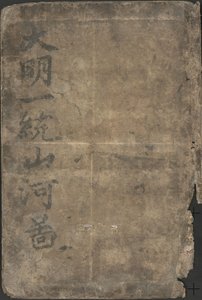 大明一統山河啚